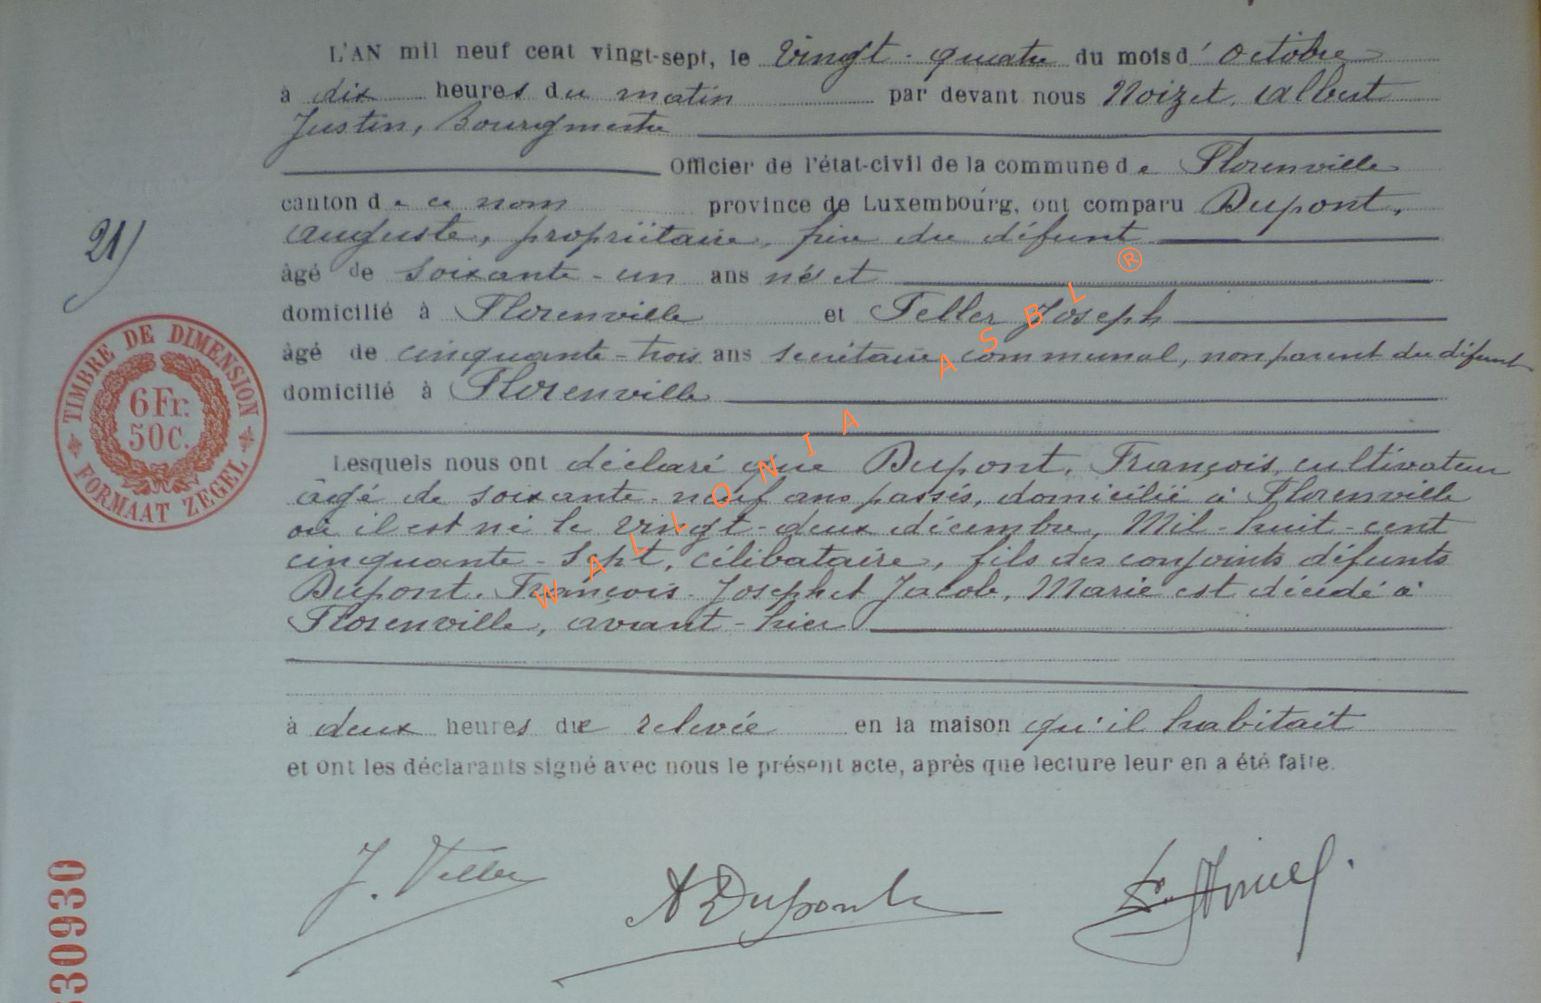 L'AN mil neuf cent vingt-sept, le vingt-quatre du mois d'octobre
à dix heures du matin par devant nous Noizet, Albert
Justin, Bourgmestre
Officier de l'état-civil de la commune de Florenville
canton de ce nom province de Luxembourg, ont comparu Dupont,
Auguste, propriétaire, frère du défunt
âgé de soixante-un ans né et
domicilié à Florenville et Teller Joseph
âgé de cinquante-trois ans secrétaire communal, non parent du défunt
domicilié à Florenville
21)
TIMBRE DE DIMENSION
6 Fr.
50 C.
FORMAAT ZEGEL
Lesquels nous ont déclaré que Dupont, François, cultivateur
âgé de soixante-neuf ans passés, domicilié à Florenville
où il est né le vingt-deux décembre, Mil-huit-cent
cinquante-sept, célibataire, fils des conjoints défunts
Dupont, François-Joseph et Jacob, Marie est décédé à
Florenville, avant-hier
à deux heures de relevée en la maison qu'il habitait
et ont les déclarants signé avec nous le présent acte, après que lecture leur en a été faite.
J. Teller A Dupont
30930
WALLONIA ASBL ®